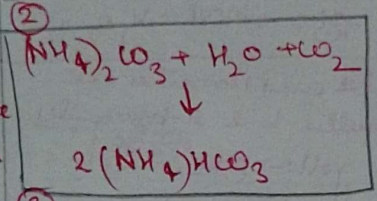 2
(NH4)2CO3 + H2O + CO2
↓
2(NH4)HCO3